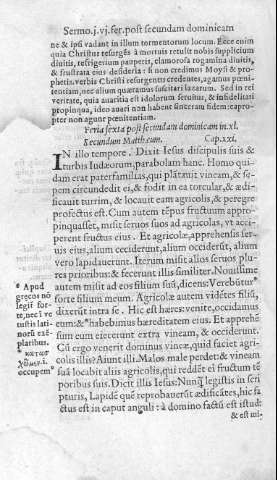 Sermo.j.vj.fer.post secundam dominicam
ne & ipsi vadant in illum tormentorum locum. Ecce enim
quia Christus resurgēs à mortuis retulit nobis supplicium
diuitis, refrigerium pauperis, clamorosa rogamina diuitis,
& frustrata eius desideria: si non credimus Moysi & pro-
phetis. verbis Christi resurgentis credentes, agamus pœni-
tentiam, nec alium quæramus suscitari lazarum. Sed in rei
veritate, quia auaritia est idolorum seruitus, & infidelitati
propinqua, ideo auari non habent sinceram fidem: capro-
pter non agunt pœnitentiam.
Feria sexta post secundam dominicam in.xl.
Secundum Matthæum. Cap.xxi.
IN illo tempore. Dixit Iesus discipulis suis &
turbis Iudæorum, parabolam hanc. Homo qui-
dam erat paterfamilias, qui plātauit vineam, & se-
pem circundedit ei, & fodit in ea torcular, & ædi-
ficauit turrim, & locauit eam agricolis, & peregre
profectus est. Cum autem tēpus fructuum appro-
pinquasset, misit seruos suos ad agricolas, vt acci-
perent fructus eius. Et agricolæ, apprehensis ser-
uis eius, alium ceciderunt, alium occiderūt, alium
vero lapidauerunt. Iterum misit alios seruos plu-
res prioribus: & fecerunt illis similiter. Nouissime
autem misit ad eos filium suū, dicens: Verebūtur*
forte filium meum. Agricolæ autem vidētes filiū,
dixerūt intra se. Hic est hæres: venite, occidamus
eum: & *habebimus hæreditatem eius. Et apprehē-
sum eum eiecerunt extra vineam, & occiderunt.
Cū ergo venerit dominus vineæ, quid faciet agri-
colis illis? Aiunt illi. Malos male perdet: & vineam
suā locabit aliis agricolis, qui reddēt ei fructum tē
poribus suis. Dicit illis Iesus: Nunq̄ legistis in scri
pturis, Lapidē quē reprobauerūt ædificātes, hic fa
ctus est in caput anguli: à domino factū est istud:
& est mi-
* Apud
græcos nō
legit for-
te, nec i ve
tustis lati-
norū exē-
plaribus.
* κατασ
χῶμεν.i.
occupem°